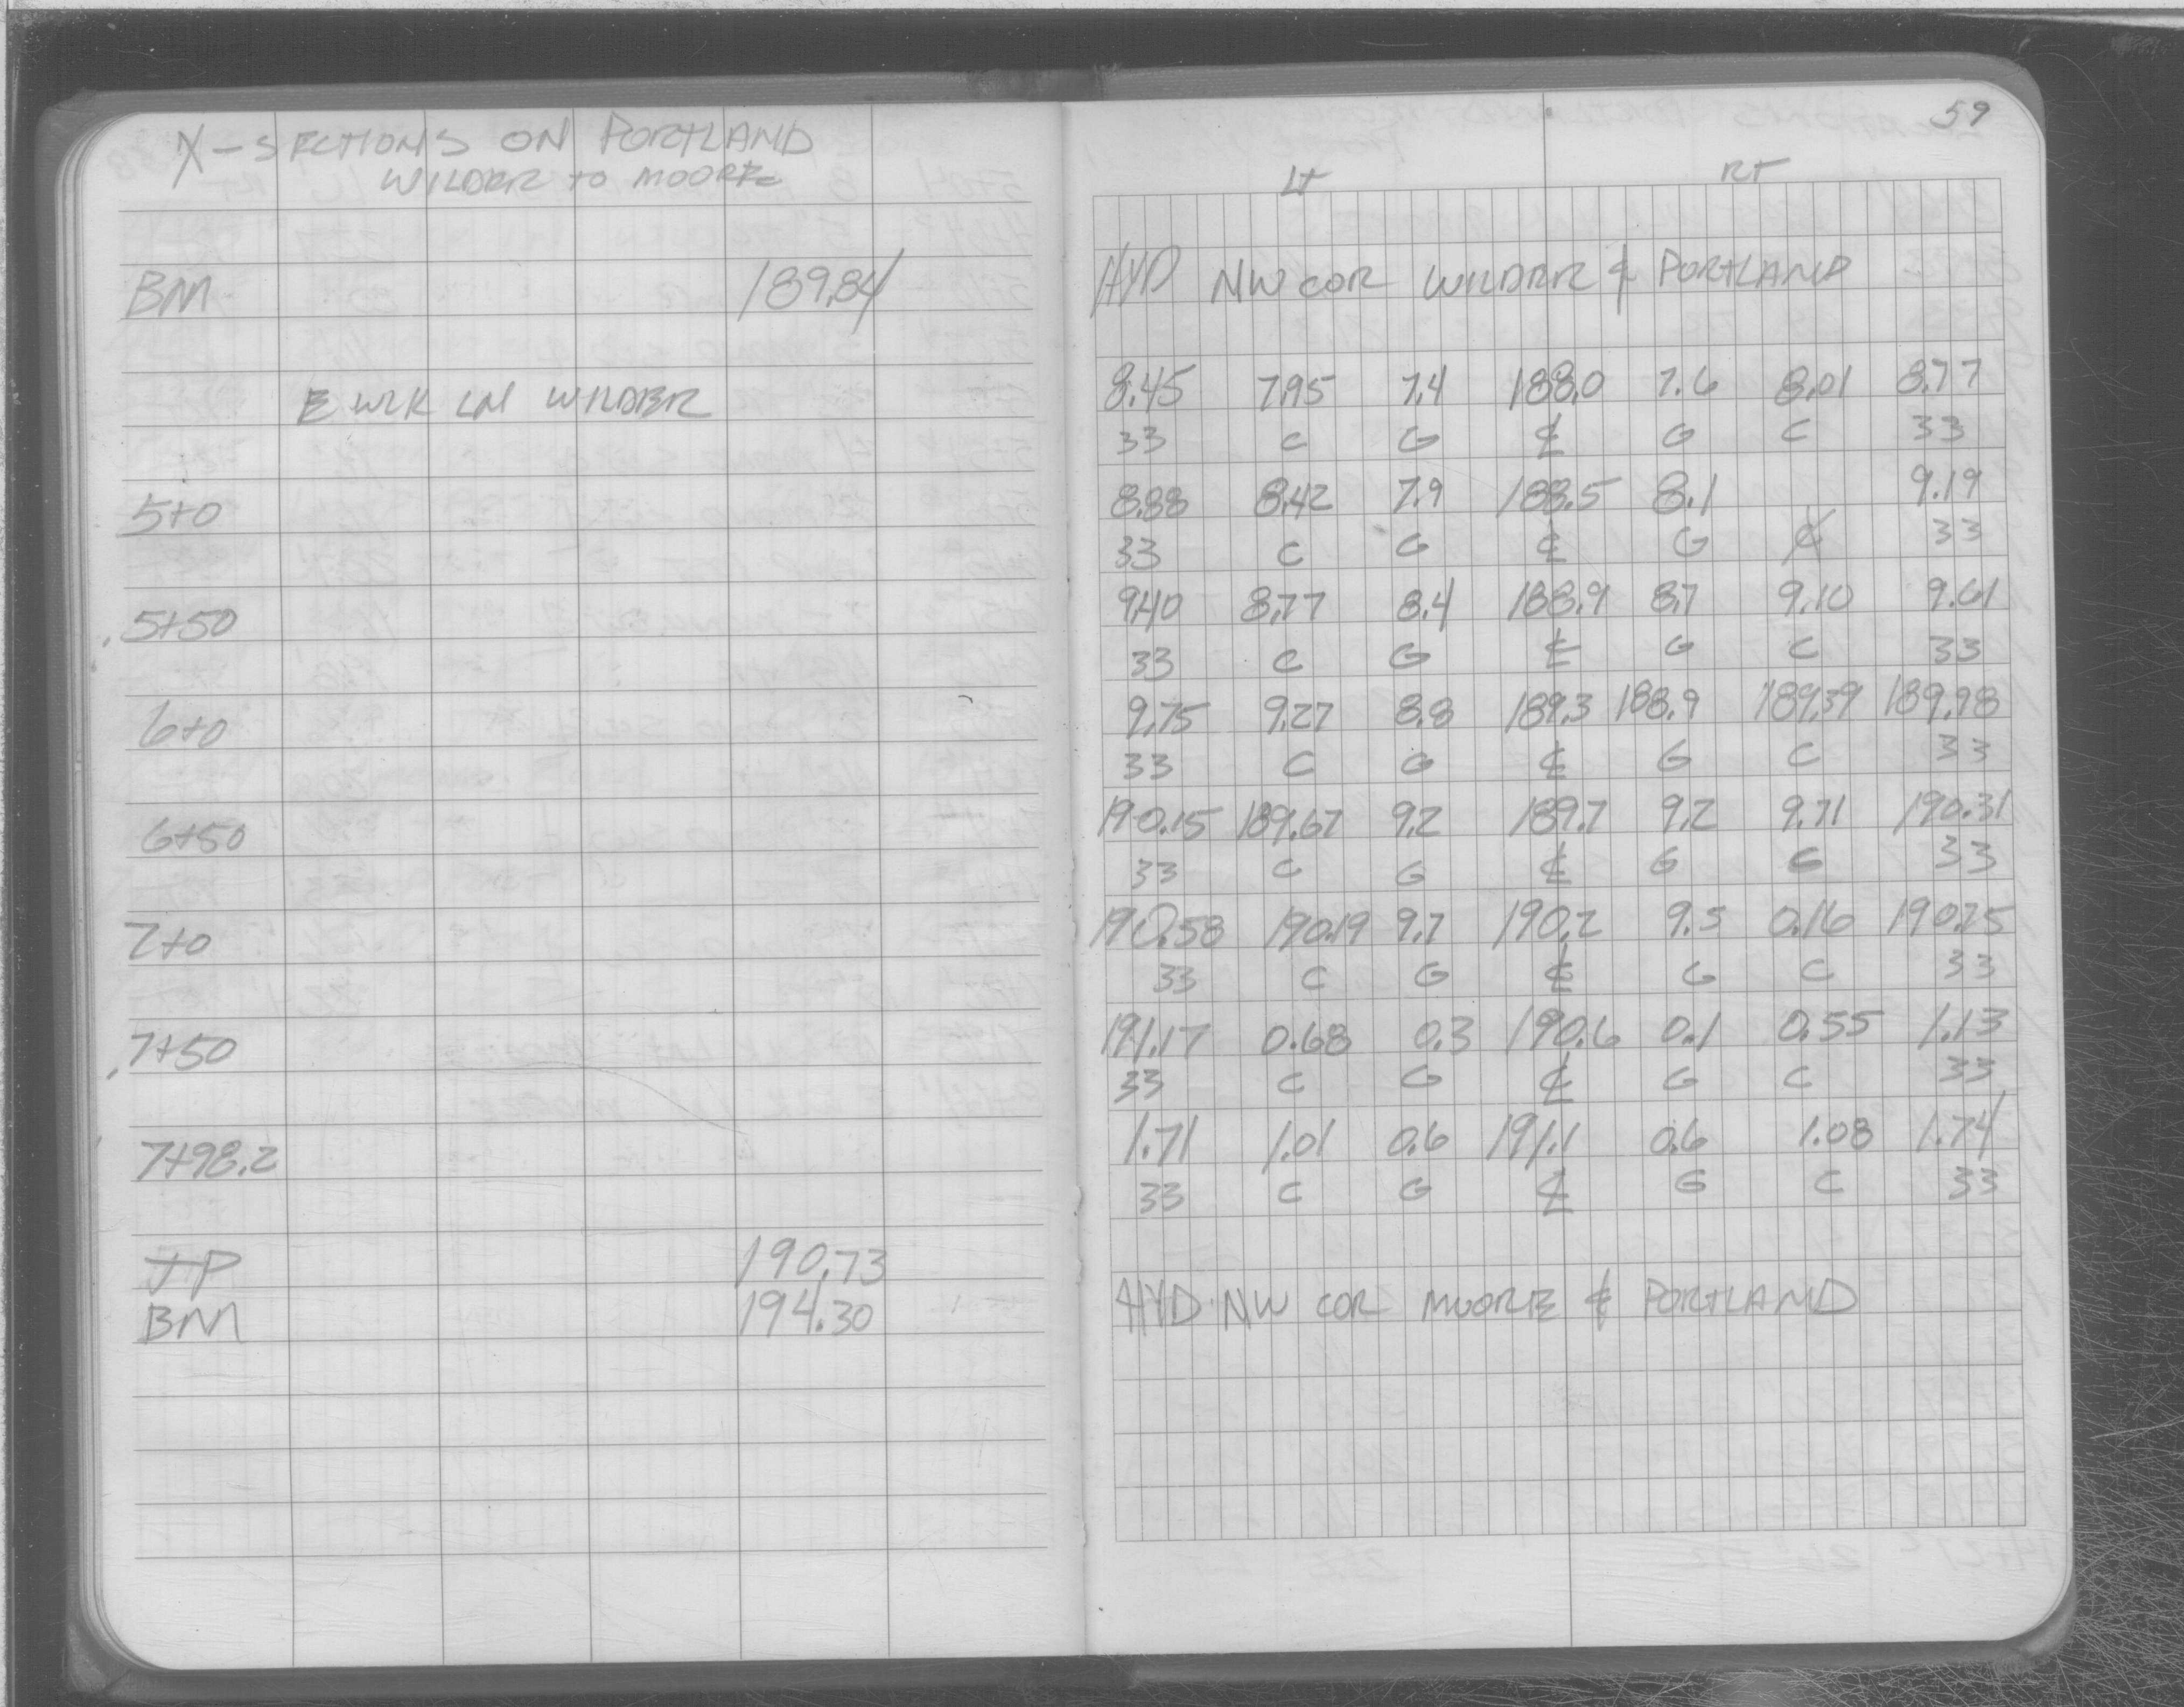 X-SECTIONS ON PORTLAND
WILDER to MOORE
BM 189.84
E WLK LN WILDER
5+0
5+50
6+0
6+50
7+0
7+50
7+98.2
TP 190.73
BM 194.30
59
Lt Rt
HYD NW COR WILDER & PORTLAND
8.45 7.95 7.4 188.0 7.6 8.01 8.77
33 C G ℄ G C 33
8.88 8.42 7.9 188.5 8.1 9.19
33 C G ℄ G C 33
9.40 8.77 8.4 188.9 8.7 9.10 9.61
33 C G ℄ G C 33
9.75 9.27 8.8 189.3 188.9 189.39 189.98
33 C G ℄ G C 33
190.15 189.67 9.2 189.7 9.2 9.71 190.31
33 C G ℄ G C 33
190.58 190.19 9.7 190.2 9.5 0.16 190.75
33 C G ℄ G C 33
191.17 0.68 0.3 190.6 0.1 0.55 1.13
33 C G ℄ G C 33
1.71 1.01 0.6 191.1 0.6 1.08 1.74
33 C G ℄ G C 33
HYD NW COR MOORE & PORTLAND